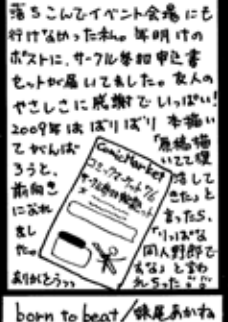 落ちこんでイベント会場にも
行けなかった私。年明けの
ポストに、サークル参加申込書
セットが届いてました。友人の
やさしさに感謝でいっぱい!
2009年はばりばり本描い
てがんば
ろうと、
前向き
におれ
まし
た。
ありがとうっっ
「原稿描
いてて復
活して
きた」と
言ったら、
「りっぱな
同人野郎で
すな」と言わ
れちった
ComicMarket
コミックマーケット76
サークル参加申込書セット
born to beat/妹尾あかね